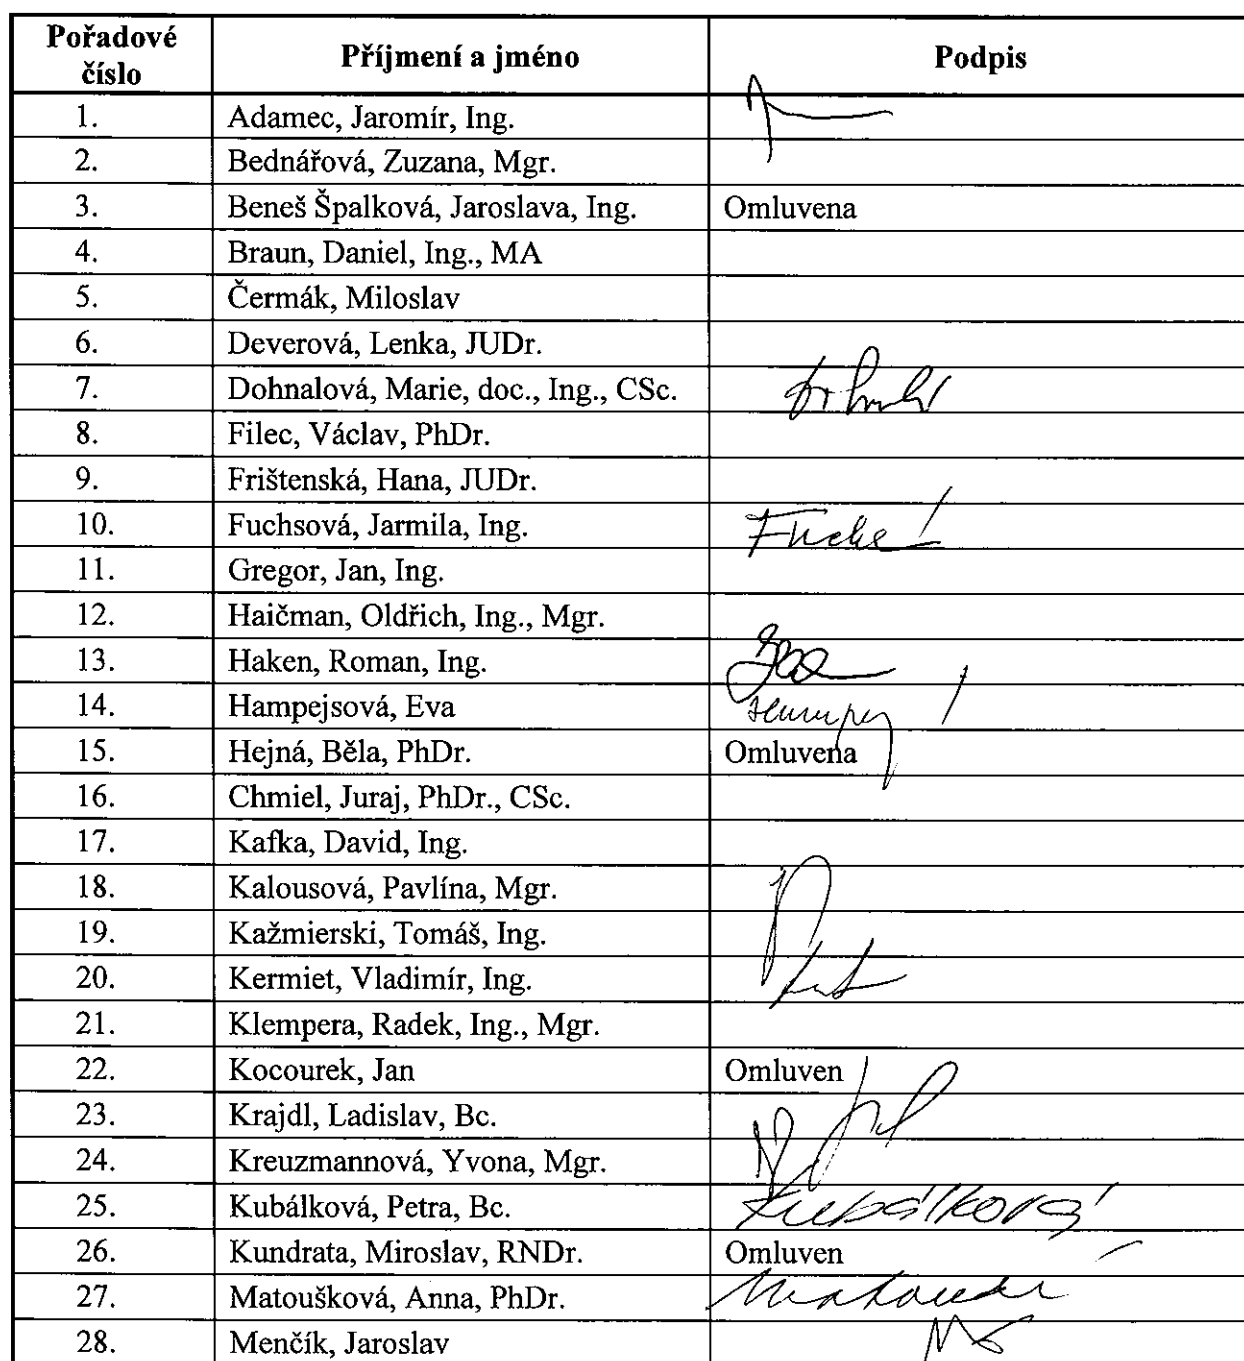 Pořadové číslo Příjmení a jméno Podpis
1. Adamec, Jaromír, Ing.
2. Bednářová, Zuzana, Mgr.
3. Beneš Špalková, Jaroslava, Ing. Omluvena
4. Braun, Daniel, Ing., MA
5. Čermák, Miloslav
6. Deverová, Lenka, JUDr.
7. Dohnalová, Marie, doc., Ing., CSc.
8. Filec, Václav, PhDr.
9. Frištenská, Hana, JUDr.
10. Fuchsová, Jarmila, Ing.
11. Gregor, Jan, Ing.
12. Haičman, Oldřich, Ing., Mgr.
13. Haken, Roman, Ing.
14. Hampejsová, Eva
15. Hejná, Běla, PhDr. Omluvena
16. Chmiel, Juraj, PhDr., CSc.
17. Kafka, David, Ing.
18. Kalousová, Pavlína, Mgr.
19. Kažmierski, Tomáš, Ing.
20. Kermiet, Vladimír, Ing.
21. Klempera, Radek, Ing., Mgr.
22. Kocourek, Jan Omluven
23. Krajdl, Ladislav, Bc.
24. Kreuzmannová, Yvona, Mgr.
25. Kubálková, Petra, Bc. Kubálková
26. Kundrata, Miroslav, RNDr. Omluven
27. Matoušková, Anna, PhDr.
28. Menčík, Jaroslav